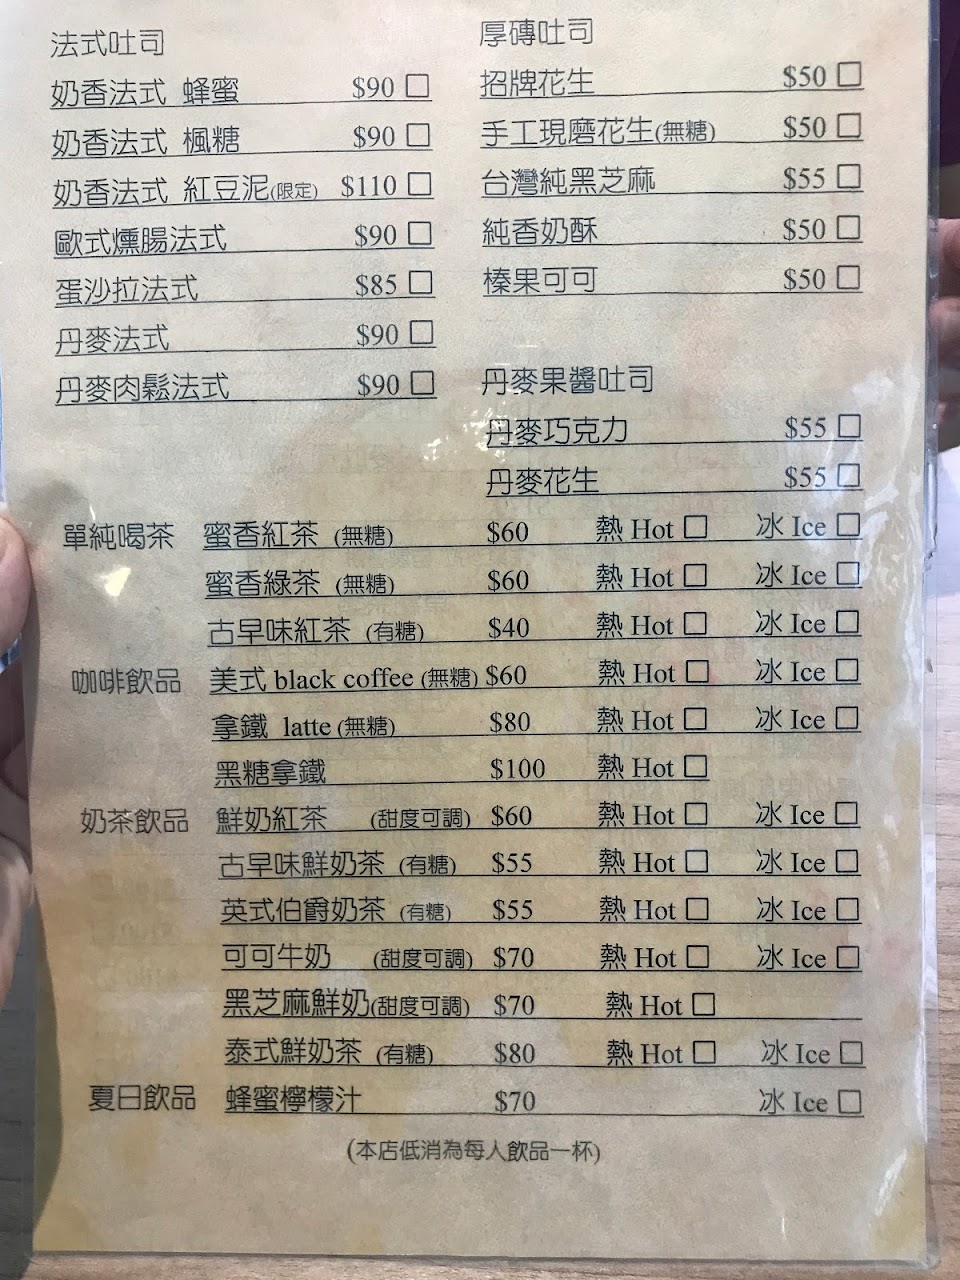 法式吐司
奶香法式 蜂蜜 $90 □
奶香法式 楓糖 $90 □
奶香法式 紅豆泥(限定) $110 □
歐式燻腸法式 $90 □
蛋沙拉法式 $85 □
丹麥法式 $90 □
丹麥肉鬆法式 $90 □
厚磚吐司
招牌花生 $50 □
手工現磨花生(無糖) $50 □
台灣純黑芝麻 $55 □
純香奶酥 $50 □
榛果可可 $50 □
丹麥果醬吐司
丹麥巧克力 $55 □
丹麥花生 $55 □
單純喝茶 蜜香紅茶 (無糖) $60 熱 Hot □ 冰 Ice □
蜜香綠茶 (無糖) $60 熱 Hot □ 冰 Ice □
古早味紅茶 (有糖) $40 熱 Hot □ 冰 Ice □
咖啡飲品 美式 black coffee (無糖) $60 熱 Hot □ 冰 Ice □
拿鐵 latte (無糖) $80 熱 Hot □ 冰 Ice □
黑糖拿鐵 $100 熱 Hot □
奶茶飲品 鮮奶紅茶 (甜度可調) $60 熱 Hot □ 冰 Ice □
古早味鮮奶茶 (有糖) $55 熱 Hot □ 冰 Ice □
英式伯爵奶茶 (有糖) $55 熱 Hot □ 冰 Ice □
可可牛奶 (甜度可調) $70 熱 Hot □ 冰 Ice □
黑芝麻鮮奶(甜度可調) $70 熱 Hot □
泰式鮮奶茶 (有糖) $80 熱 Hot □ 冰 Ice □
夏日飲品 蜂蜜檸檬汁 $70 冰 Ice □
(本店低消為每人飲品一杯)